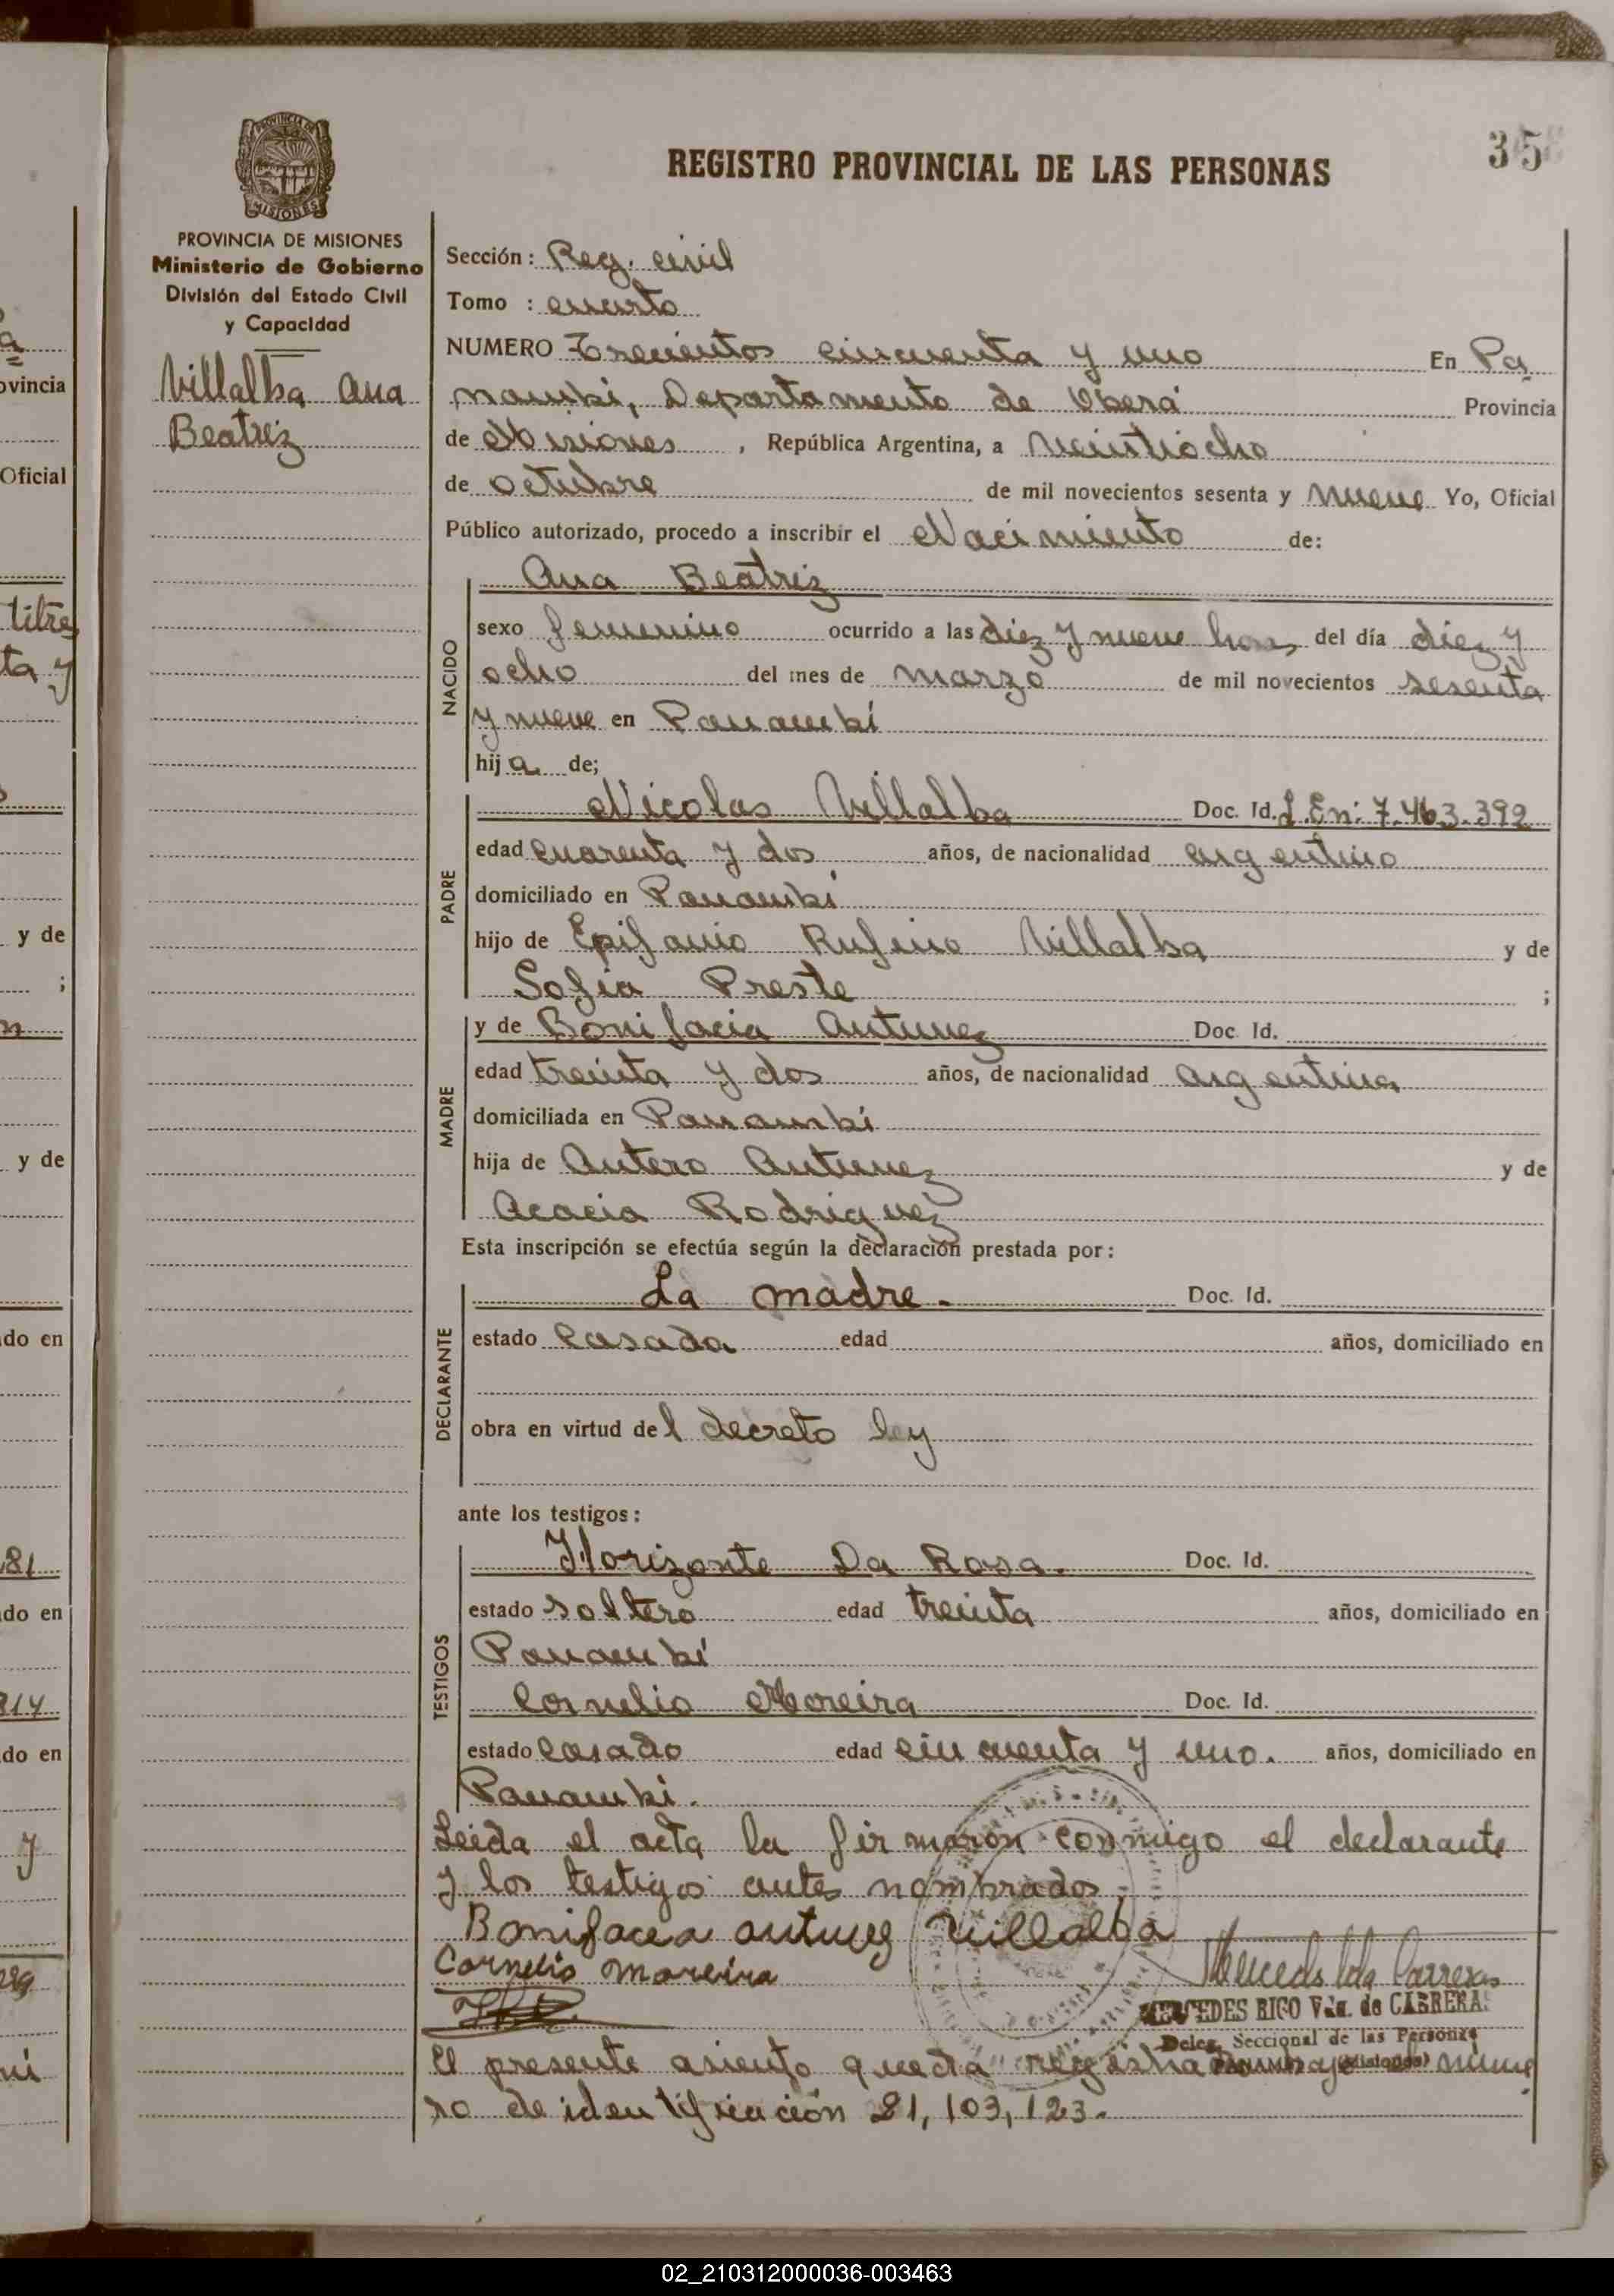 35
REGISTRO PROVINCIAL DE LAS PERSONAS
PROVINCIA DE MISIONES
Ministerio de Gobierno
División del Estado Civil
y Capacidad
Villalba Ana
Beatriz
Sección: Reg. civil
Tomo : cuarto
NUMERO Trecientos cincuenta y uno En Pa
nambi, Departamento de Oberá Provincia
de Misiones, República Argentina, a veintiocho
de octubre de mil novecientos sesenta y nueve Yo, Oficial
Público autorizado, procedo a inscribir el Nacimiento de:
Ana Beatriz
NACIDO
sexo femenino ocurrido a las diez y nueve horas del día diez y
ocho del mes de marzo de mil novecientos sesenta
y nueve en Panambí
hija de;
PADRE
Nicolas Villalba Doc. Id. L.En: 7.463.392
edad cuarenta y dos años, de nacionalidad argentino
domiciliado en Panambí
hijo de Epifanio Rufino Villalba y de
Sofia Preste ;
MADRE
y de Bonifacia Antunez Doc. Id.
edad treinta y dos años, de nacionalidad argentina
domiciliada en Panambí
hija de Antero Antunez y de
Acacia Rodriguez
Esta inscripción se efectúa según la declaración prestada por:
DECLARANTE
La madre. Doc. Id.
estado casada edad años, domiciliado en
obra en virtud del decreto ley
ante los testigos:
TESTIGOS
Horizonte Da Rosa. Doc. Id.
estado soltero edad treinta años, domiciliado en
Panambí
Cornelio Moreira Doc. Id.
estado casado edad cincuenta y uno. años, domiciliado en
Panambi.
Leida el acta la firmaron conmigo el declarante
y los testigos antes nombrados,
Bonifacea antunez Villalba
Cornelio moreira
MERCEDES RICO Vda. de CABRERA
Deleg. Seccional de las Personas
PANAMBI (Misiones)
El presente asiento queda registra bajo el núme
ro de identificación 21,103,123.
ovincia
Oficial
y de
;
y de
do en
81
do en
814
do en
y
02_210312000036-003463